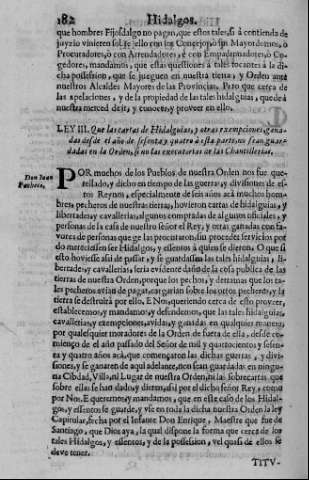 182 Hidalgos.
que hombres Fijosdalgo no pagan, que estos tales, si á contienda de
juyzio vinieren sobre ello con los Conçejos, ó sus Mayordomos, o
Procuradores, ò con Arrendadores, é con Empadronadores, ò Co-
gedores, mandamos, que estas questiones á tales tocantes á la di-
cha possession, que se jueguen en nuestra tierra, y Orden ante
nuestros Alcaldes Mayores de las Provincias. Pero que cerca de
las apelaciones, y de la propiedad de las tales hidalguias, quede à
nuestra merced de ir, y conocer, y proveer en ello.
LEY III. Que las cartas de Hidalguias, y otras exempciones, gana-
das desde el año de sesenta y quatro à esta parte, no sean guar-
dadas en la Orden, si no las executorias de las Chancillerias.
Don Iuan
Pacheco.
POR muchos de los Pueblos de nuestra Orden nos fue que-
rellado, y dicho en tiempo de las guerras, y divisiones de es-
tos Reynos, especialmente de seis años acá muchos hom-
bres pecheros de nuestras tierras, hovieron cartas de hidalguias, y
libertades, y cavallerias, algunos compradas de algunos oficiales, y
personas de la casa de nuestro señor el Rey, y otras ganadas con fa-
vores de personas que las procuraron, sin proceder servicios por
do mereciessen ser Hidalgos, y essentos á quien se dieron. O que si
esto hoviesse assi de passar, y se guardassen las tales hidalguias, li-
bertades, y cavallerias, seria evidente daño de la cosa publica de las
tierras de nuestra Orden, porque los pechos, y derramas que los ta-
les pecheros avian de pagar, cargarian sobre los otros pecheros, y la
tierra se destruirà por ello. E Nos, queriendo cerca de esto proveer,
establecemos, y mandamos, y defendemos, que las tales hidalguias,
cavallerias, y exempciones, avidas, y ganadas en qualquier manera,
por qualesquier moradores de la Orden de fuera de ella, desde co-
mienço de el año passado del Señor de mil y quatrocientos y sesen-
ta y quatro años acá, que començaron las dichas guerras, y divi-
siones, y se ganaren de aqui adelante, non sean guardadas en ningu-
na Cibdad, Villa, ni Lugar de nuestra Orden, ni las sobrecartas que
sobre ellas se han dado, y dieren, assi por el dicho señor Rey, como
por Nos. E queremos, y mandamos, que en este caso de los Hidal-
gos, y essentos se guarde, y vse en toda la dicha nuestra Orden la ley
Capitular, fecha por el Infante Don Enrique, Maestre que fue de
Santiago, que Dios aya, la qual dispone la forma que cerca de los
tales Hidalgos, y essentos, y de la possession, vel quasi de ellos se
deve tener.
TITV-